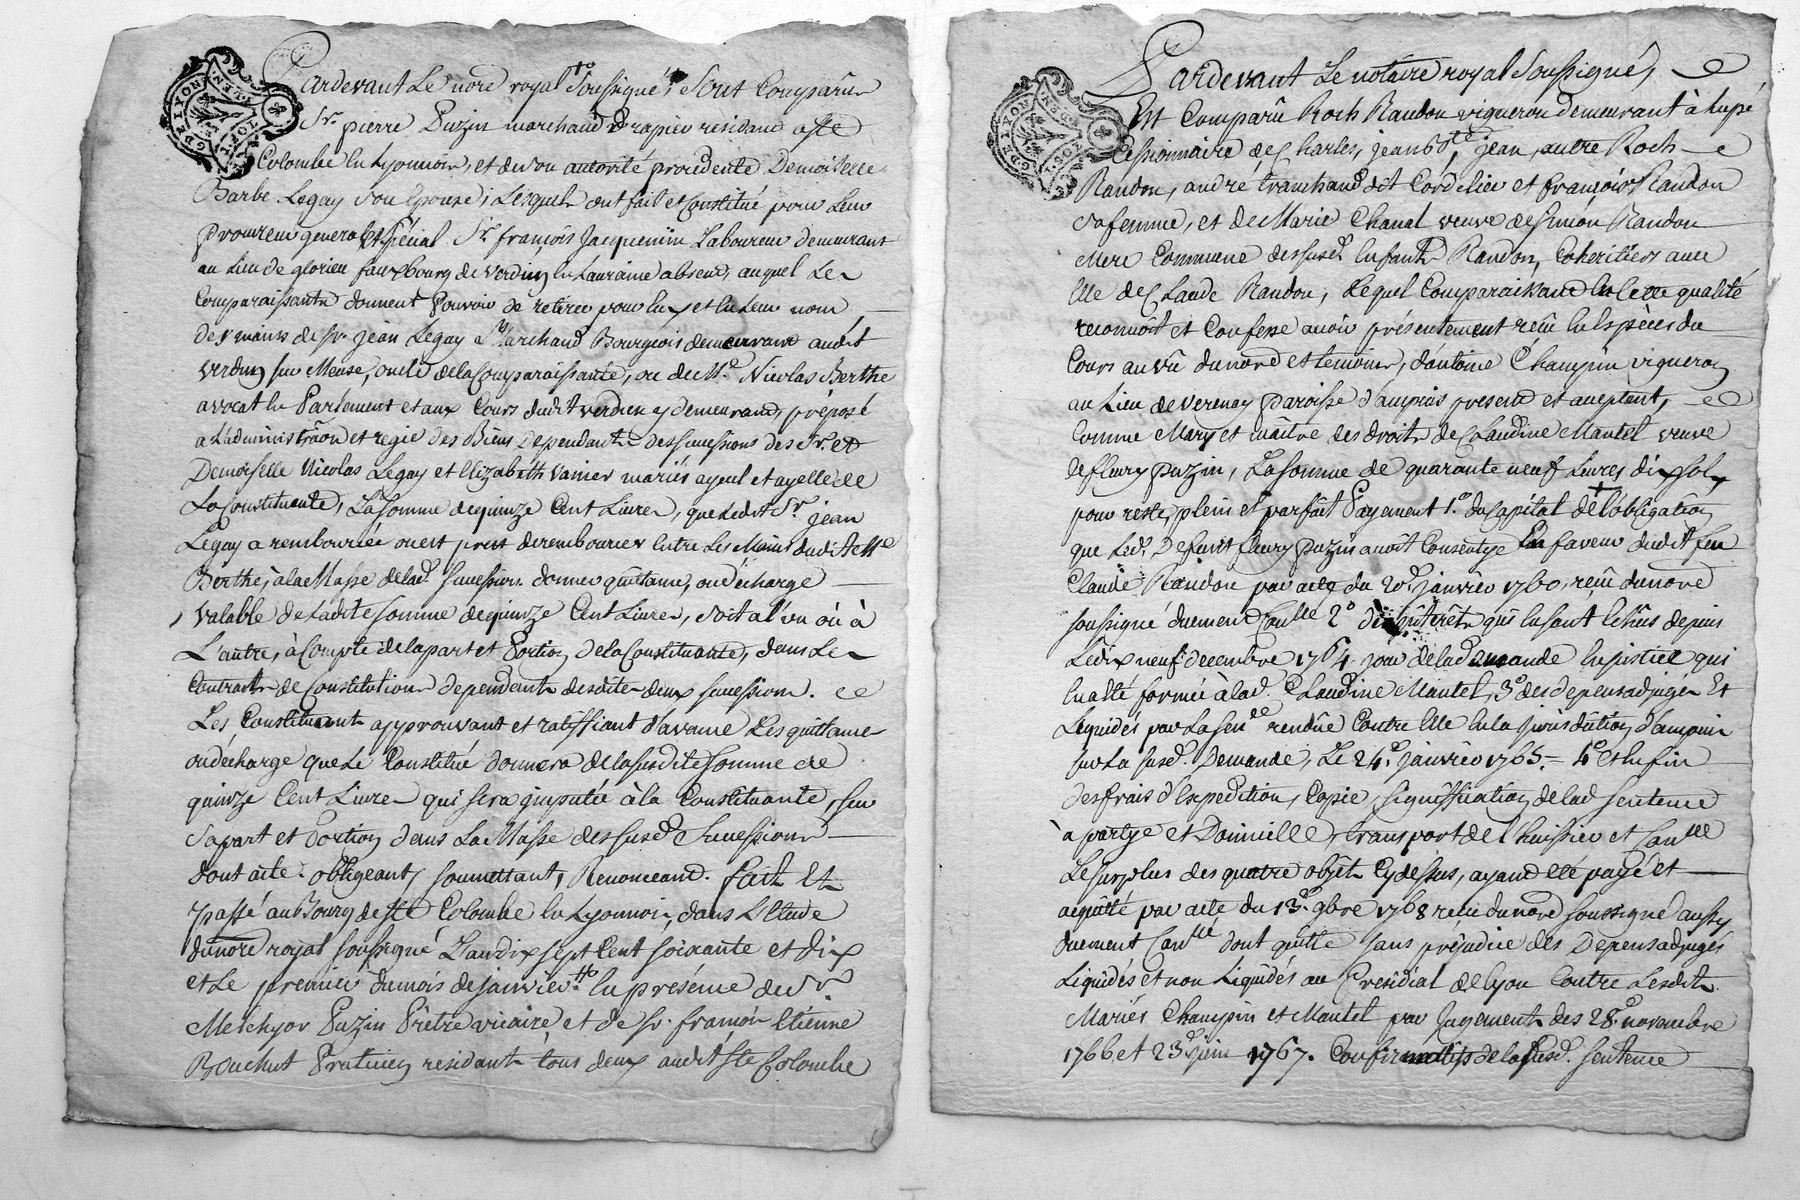 Pardevant Le nore royal soussigné, Sont Comparûs
Sr. pierre Puzin marchand Drapier residant a Ste
Colombe en Lyonnois, et de son autorité procédente Demoiselle
Barbe Legay son Epouse, Lesquels ont fait et Constitué pour Leur
procureur general et spécial Sr. françois Jacquemin Laboureur demeurant
au Lieu de glorieu fauxbourg de verdun en Lauraine absent, auquel Les
Comparaissants donnent Pouvoir de retirer pour Eux et en Leur nom
des mains de sr. jean Legay Marchand Bourgeois demeurant audit
verdun sur Meuse, oncle de la Comparaissante, ou de Me. Nicolas Berthe
avocat en Parlement et aux Cours dudit verdun y demeurant, préposé
a L'administraôn et regie des Biens Dependants des successions des Sr. et
Demoiselle Nicolas Legay et Elizabeth vanier mariés ayeul et ayeulle de
La Constituante, La somme de quinze Cent Livres, que Ledit Sr. jean
Legay a remboursée ou est prest de rembourser entre Les Mains dudit Me
Berthe, à la Masse des ad. successions. donner quittance, ou décharge
valable de Ladite somme de quinze Cent Livres, soit a l'un ou à
L'autre, à Compte de la part et Portion de la Constituante, dans Les
Contracts de Constitution dependents desdites deux successions.
Les Constituants approuvant et ratiffiant d'avance Les quittance
ou décharge que Le Constitué donnera de la susdite somme de
quinze Cent Livres qui sera imputée à la Constituante, sur
sa part et Portion dans La Masse des susd. Successions
dont acte. obligeant, soumettant, Renonceant. fait Et
passé au Bourg de Ste Colombe en Lyonnois, dans L'Etude
du nore royal soussigné L'an dix sept Cent soixante et dix
et Le premier du mois de janvier. En présence de Sr.
Melchyor Puzin Prêtre vicaire, et de sr. françois Etienne
Bouchut Praticien residants tous deux audit Ste Colombe
Pardevant Le notaire royal soussigné,
Est Comparû Roch Randon vigneron demeurant à Lupé
Cessionnaire de Charles, jean bte, jean, autre Roch
Randon, andré tranchand dit Cordelier et françoise Randon
sa femme, et de Marie Chanal veuve de simon Randon
mere Commune des susd. Enfants Randon, Coheritiers avec
Elle de Claude Randon, Lequel Comparaissant En Cette qualité
reconnoit et Confesse avoir présentement reçû En Espèces du
Cours au vû du nore et temoins, d'antoine Champin vigneron
au Lieu de verenay paroisse d'ampuis present et acceptant,
Comme Mary et maitre des droits de Claudine Mantel veuve
de fleury Puzin, La somme de quarante neuf Livres dix sols
pour reste, plein et parfait Payement 1.° du Capital de l'obligation
que Led. Defunt fleury Puzin avoit Consentye En faveur dudit feu
Claude Randon par acte du 20. janvier 1760, reçu du nore
soussigné duement Conllé 2° des intérêts qui en sont Echûs depuis
Le dix neuf decembre 1764 jour de la demande En justice qui
En a été formée à lad. Claudine Mantel, 3° des depens adjugés Et
Liquidés par La senee rendûe Contre Elle En la jurisdiction d'ampuis
sur La susd. Demande, Le 24. janvier 1765. 4° Et En fin
des frais d'Expedition, Copie, signiffication de lad. sentence
à partye et Domicille, transport de l'huissier et Conlle
Le surplus des quatre objets Cy dessus, ayant été payé et
acquitté par acte du 13. 9bre 1768 reçu du nore soussigné aussy
duement Conllé dont quitte sans préjudice des Depens adjugés
Liquidés et non Liquidés au Présidial de Lyon Contre Lesdits
Mariés Champin et Mantel par Jugements des 28. novembre
1766 et 23. juin 1767. Confirmatifs de la susd. sentence